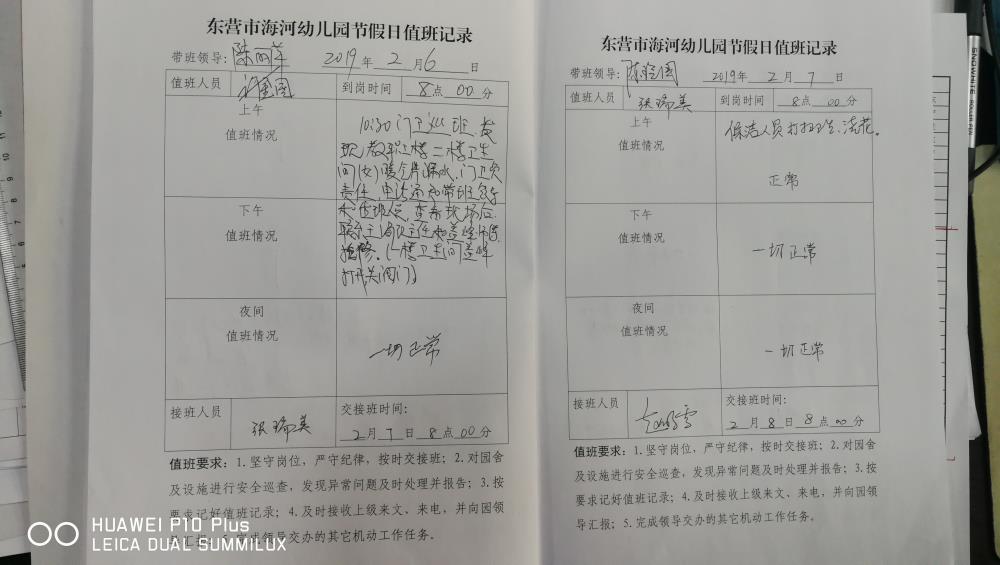 东营市海河幼儿园节假日值班记录
带班领导: 2019年2月6日
值班人员 到岗时间 8点00分
上午
值班情况
10:30门卫巡班.发
现教职工楼二楼卫生
间(女)暖气片漏水.门卫负
责任,电话通知带班领导
和值班人员,查看现场后
抢修.(一楼卫生间
打开关闭门)
下午
值班情况
夜间
值班情况
一切正常
接班人员 张瑞美 交接班时间:
2月7日8点00分
值班要求:1.坚守岗位,严守纪律,按时交接班;2.对园舍
及设施进行安全巡查,发现异常问题及时处理并报告;3.按
要求记好值班记录;4.及时接收上级来文、来电,并向园领
导汇报;5.完成领导交办的其它机动工作任务。
东营市海河幼儿园节假日值班记录
带班领导: 2019年2月7日
值班人员 张瑞美 到岗时间 8点00分
上午
值班情况
保洁人员打扫卫生、浇花。
正常
下午
值班情况
一切正常
夜间
值班情况
一切正常
接班人员 交接班时间:
2月8日8点00分
值班要求:1.坚守岗位,严守纪律,按时交接班;2.对园舍
及设施进行安全巡查,发现异常问题及时处理并报告;3.按
要求记好值班记录;4.及时接收上级来文、来电,并向园领
导汇报;5.完成领导交办的其它机动工作任务。
SNOWHITE
HUAWEI P10 Plus
LEICA DUAL SUMMILUX